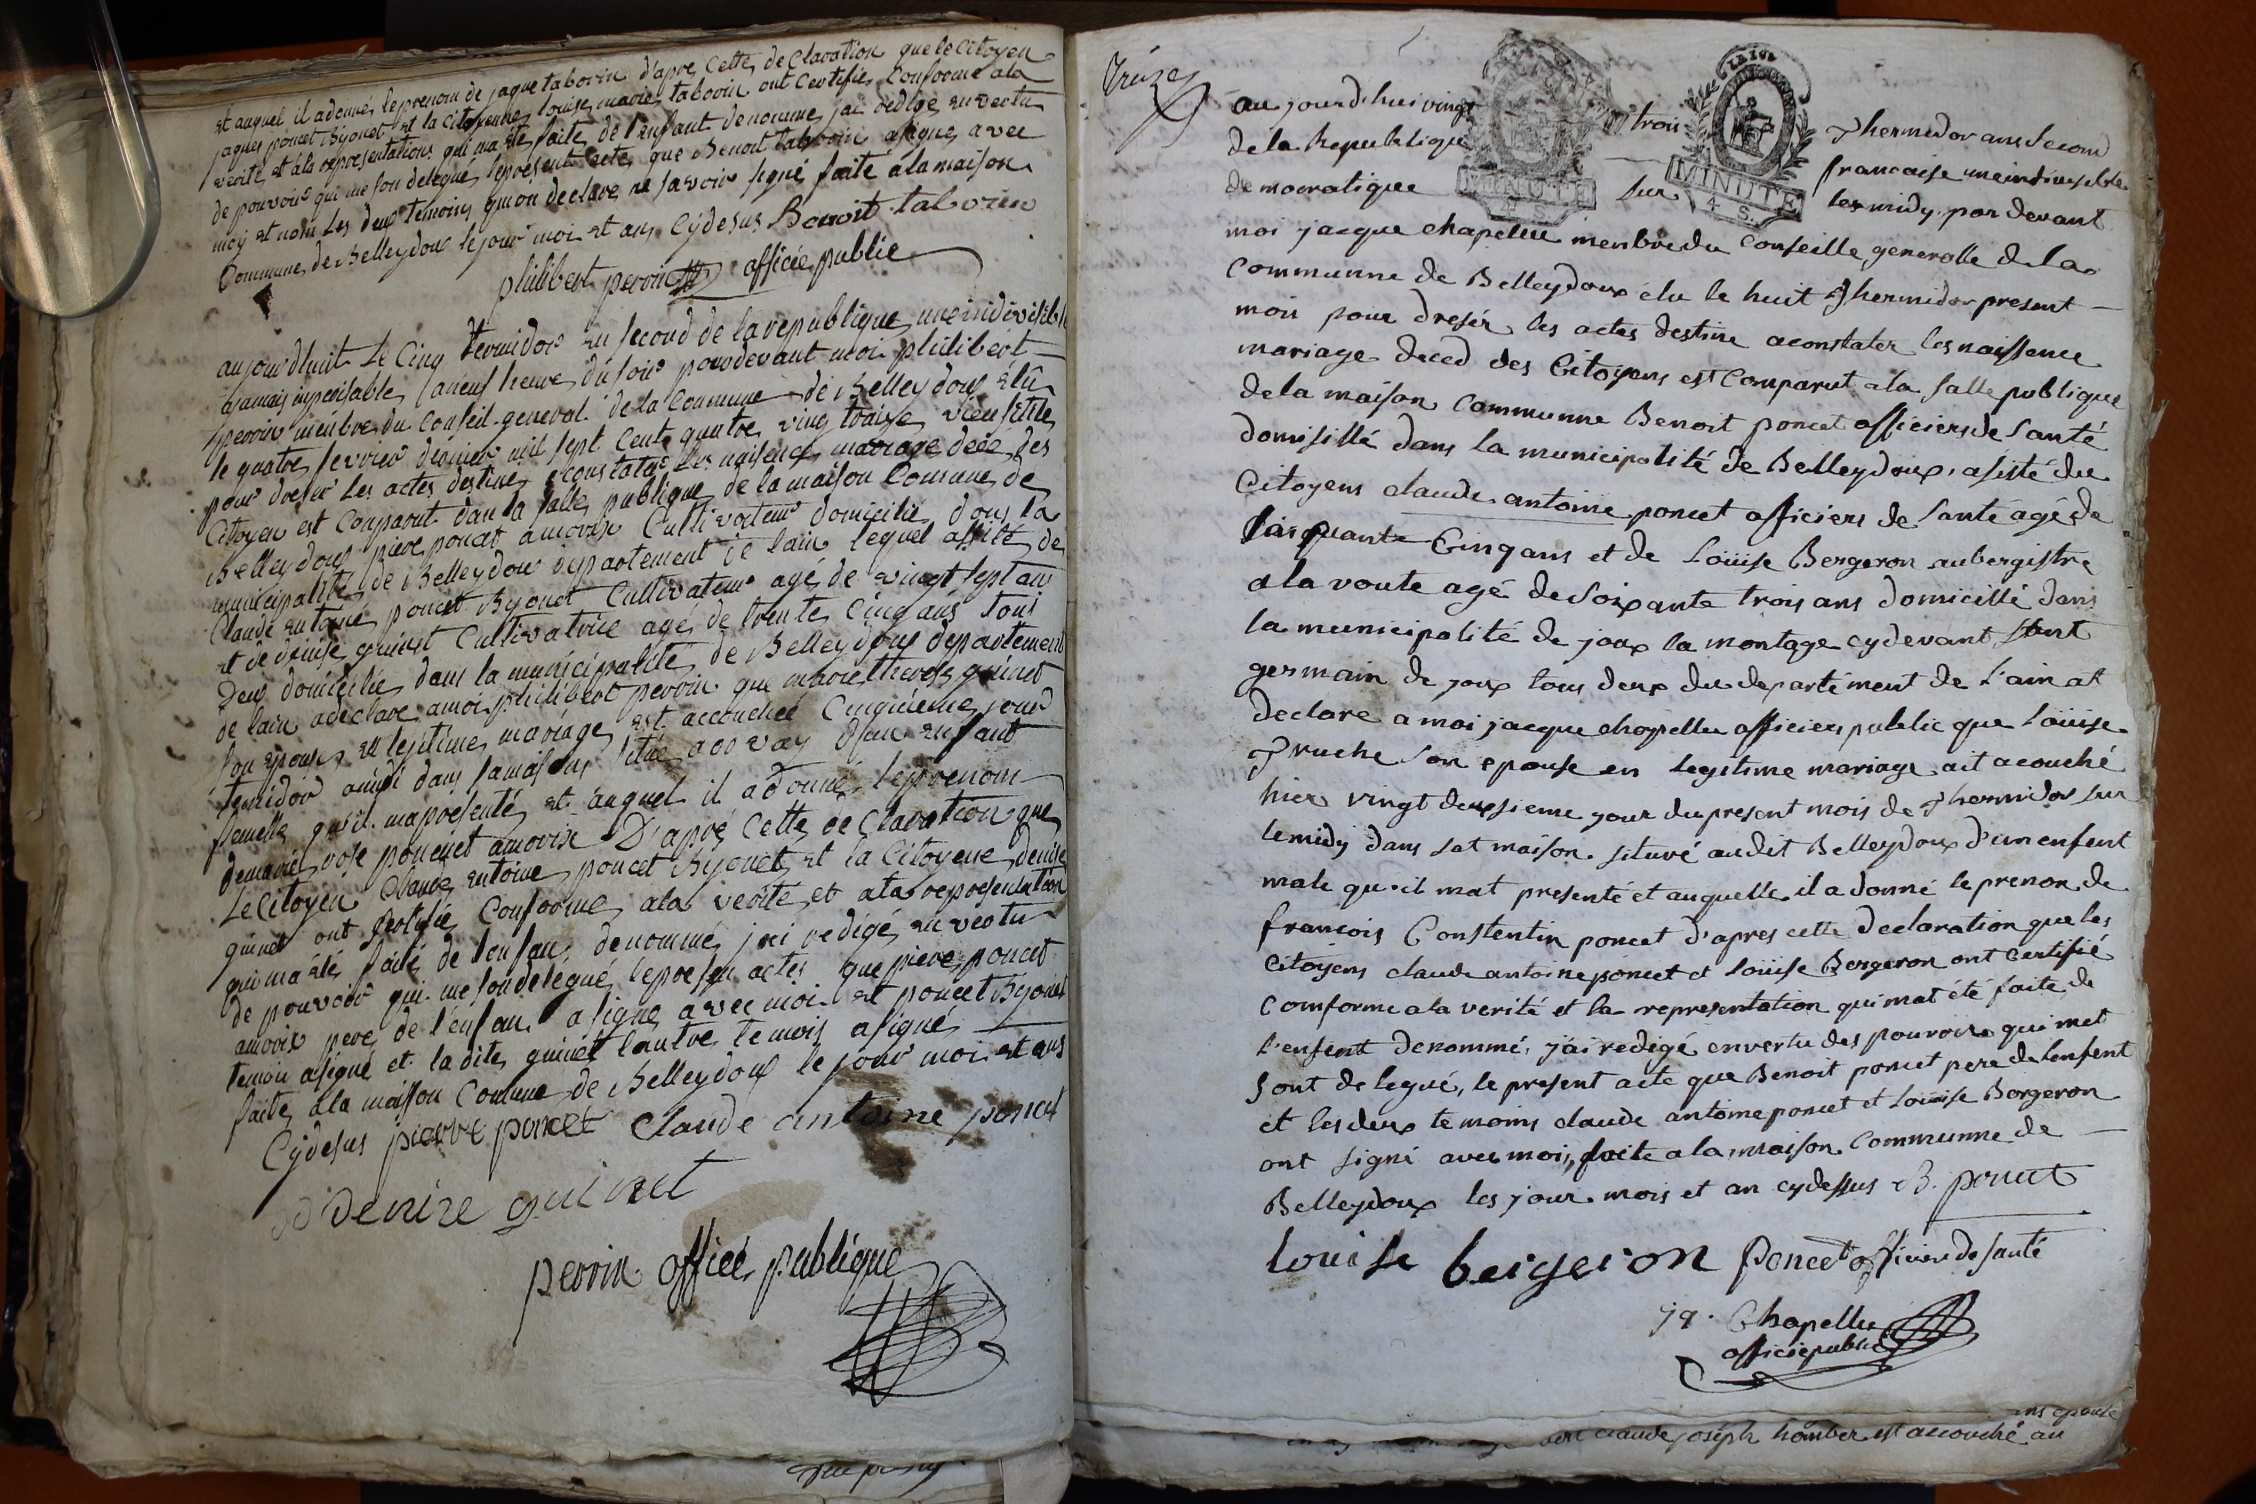 et auquel il adonné le prenom de jaque taborin d'apre cette declaration que le Citoyen
jaques poncet Bijonet et la Citoyenne louise marie taborin ont Certifié Conforme ala
verité et ala representations qui ma été faite de l'enfant denomme jai redige en vertu
de pouvoir qui me son delegué lepresent acte que Benoit taborin asigné avec
moy et nom Les deux temoins qui on declare ne savoir signé faite ala maison
Commune de Belleydoux le jour moi et ans Cydesus Benoit taborin
philibert perrin officié public
aujourdhuit Le Cinq termidor en second de la republique une indivisible
ajamais imperisable aneuf heure du soir pardevant moi philibert
perrin membre du Conseil general de la Commune de Belleydoux élû
le quatre fevrier dernier mil sept cent quatre ving traise vieu stile
pour dresur Les actes destiné aconstater Les naisence mariage décé des
Citoyen est Conparut dan la salle publique de la maison Comune de
Belleydoux piere poncet amorix Cultivateur domicilié dans la
municipalité de Belleydoux departement de lain lequel assité de
Claude antoine poncet Bijonet Cultivateur agé de vingt sept an
et de denise guinet Cultivatrice agé de trente Cinq ans tout
deux domicilié dans la municipalité de Belleydoux departement
de lain adeclare amoi philibert perrin que marie therese guinet
son epouse en legitime mariage est accouchée Cinquieme jour
termidor amidi dans samaison situé dun enfant
femelle qu'il mapresenté et auquel il adonné leprenom
demarie rose poncet amorix D'apré Cette declaration que
Le Citoyen Claude antoine poncet Bijonet et la Citoyene denise
guinet ont Certifié Conforme ala verité et ala representation
qui ma été faite de lenfan denommé jai redigé en vertu
de pouvoir qui me son delegué lepresen actes que piere poncet
amorix pere de l'enfan asigné avec moi et poncet Bijonet
temoin asigné et ladite guinet lautre temois asigné
faite ala maison Comune de Belleydoux le jour moi et ans
Cydesus pierre poncet Claude antoine poncet
denise guinet
perrin officié publique
treize
aujourd'hui vingt trois Thermidor ans second
de la Republique francaise une indivisible
democratique sur les midy par devant
moi jacque chapellu menbre du Conseille generalle de la
Communne de Belleydoux élu le huit Thermidor present
mois pour dresér les actes destine aconstater les naissence
mariage deced des Citoyens est Comparut ala salle publique
de la maison Communne Benoit poncet officiers de santé
domisillé dans la municipalité de Belleydoux, asisté du
Citoyens claude antoine poncet officiers de santé agé de
Cinquante Cinq ans et de Loüise Bergeron aubergistre
a la voute agé de soixante trois ans domicillé dans
la municipalité de joux la montage cydevant saint
germain de joux tous deux du departement de L'ain at
declare a moi jacque chapellu officiers public que Loüise
Truche son epouse en legitime mariage ait acouché
hier vingt deuxsieme jour du present mois de Thermidor sur
le midy dans sat maison situvé audit Belleydoux d'un enfent
male qu'il mat presenté et auquelle il a donné le prenon de
francois Constentin poncet d'apres cette declaration que les
Citoyens claude antoine poncet et Loüise Bergeron ont Certifié
Comforme ala verité et la representation qui mat été faite de
l'enfent denommé, j'ai redigé en vertu des pouvoirs qui met
sont delegué, le present acte que Benoit poncet pere de lenfent
et les deux temoins claude antoine poncet et Loüise Borgeron
ont signé avec mois, faite ala maison Communne de
Belleydoux les jour mois et an cydessus B. poncet
louise bergeron Poncet officier de santé
jq. Chapellu
officié public
MINUTE
4 S.
MINUTE
4 S.
claude joseph humber est accouché au